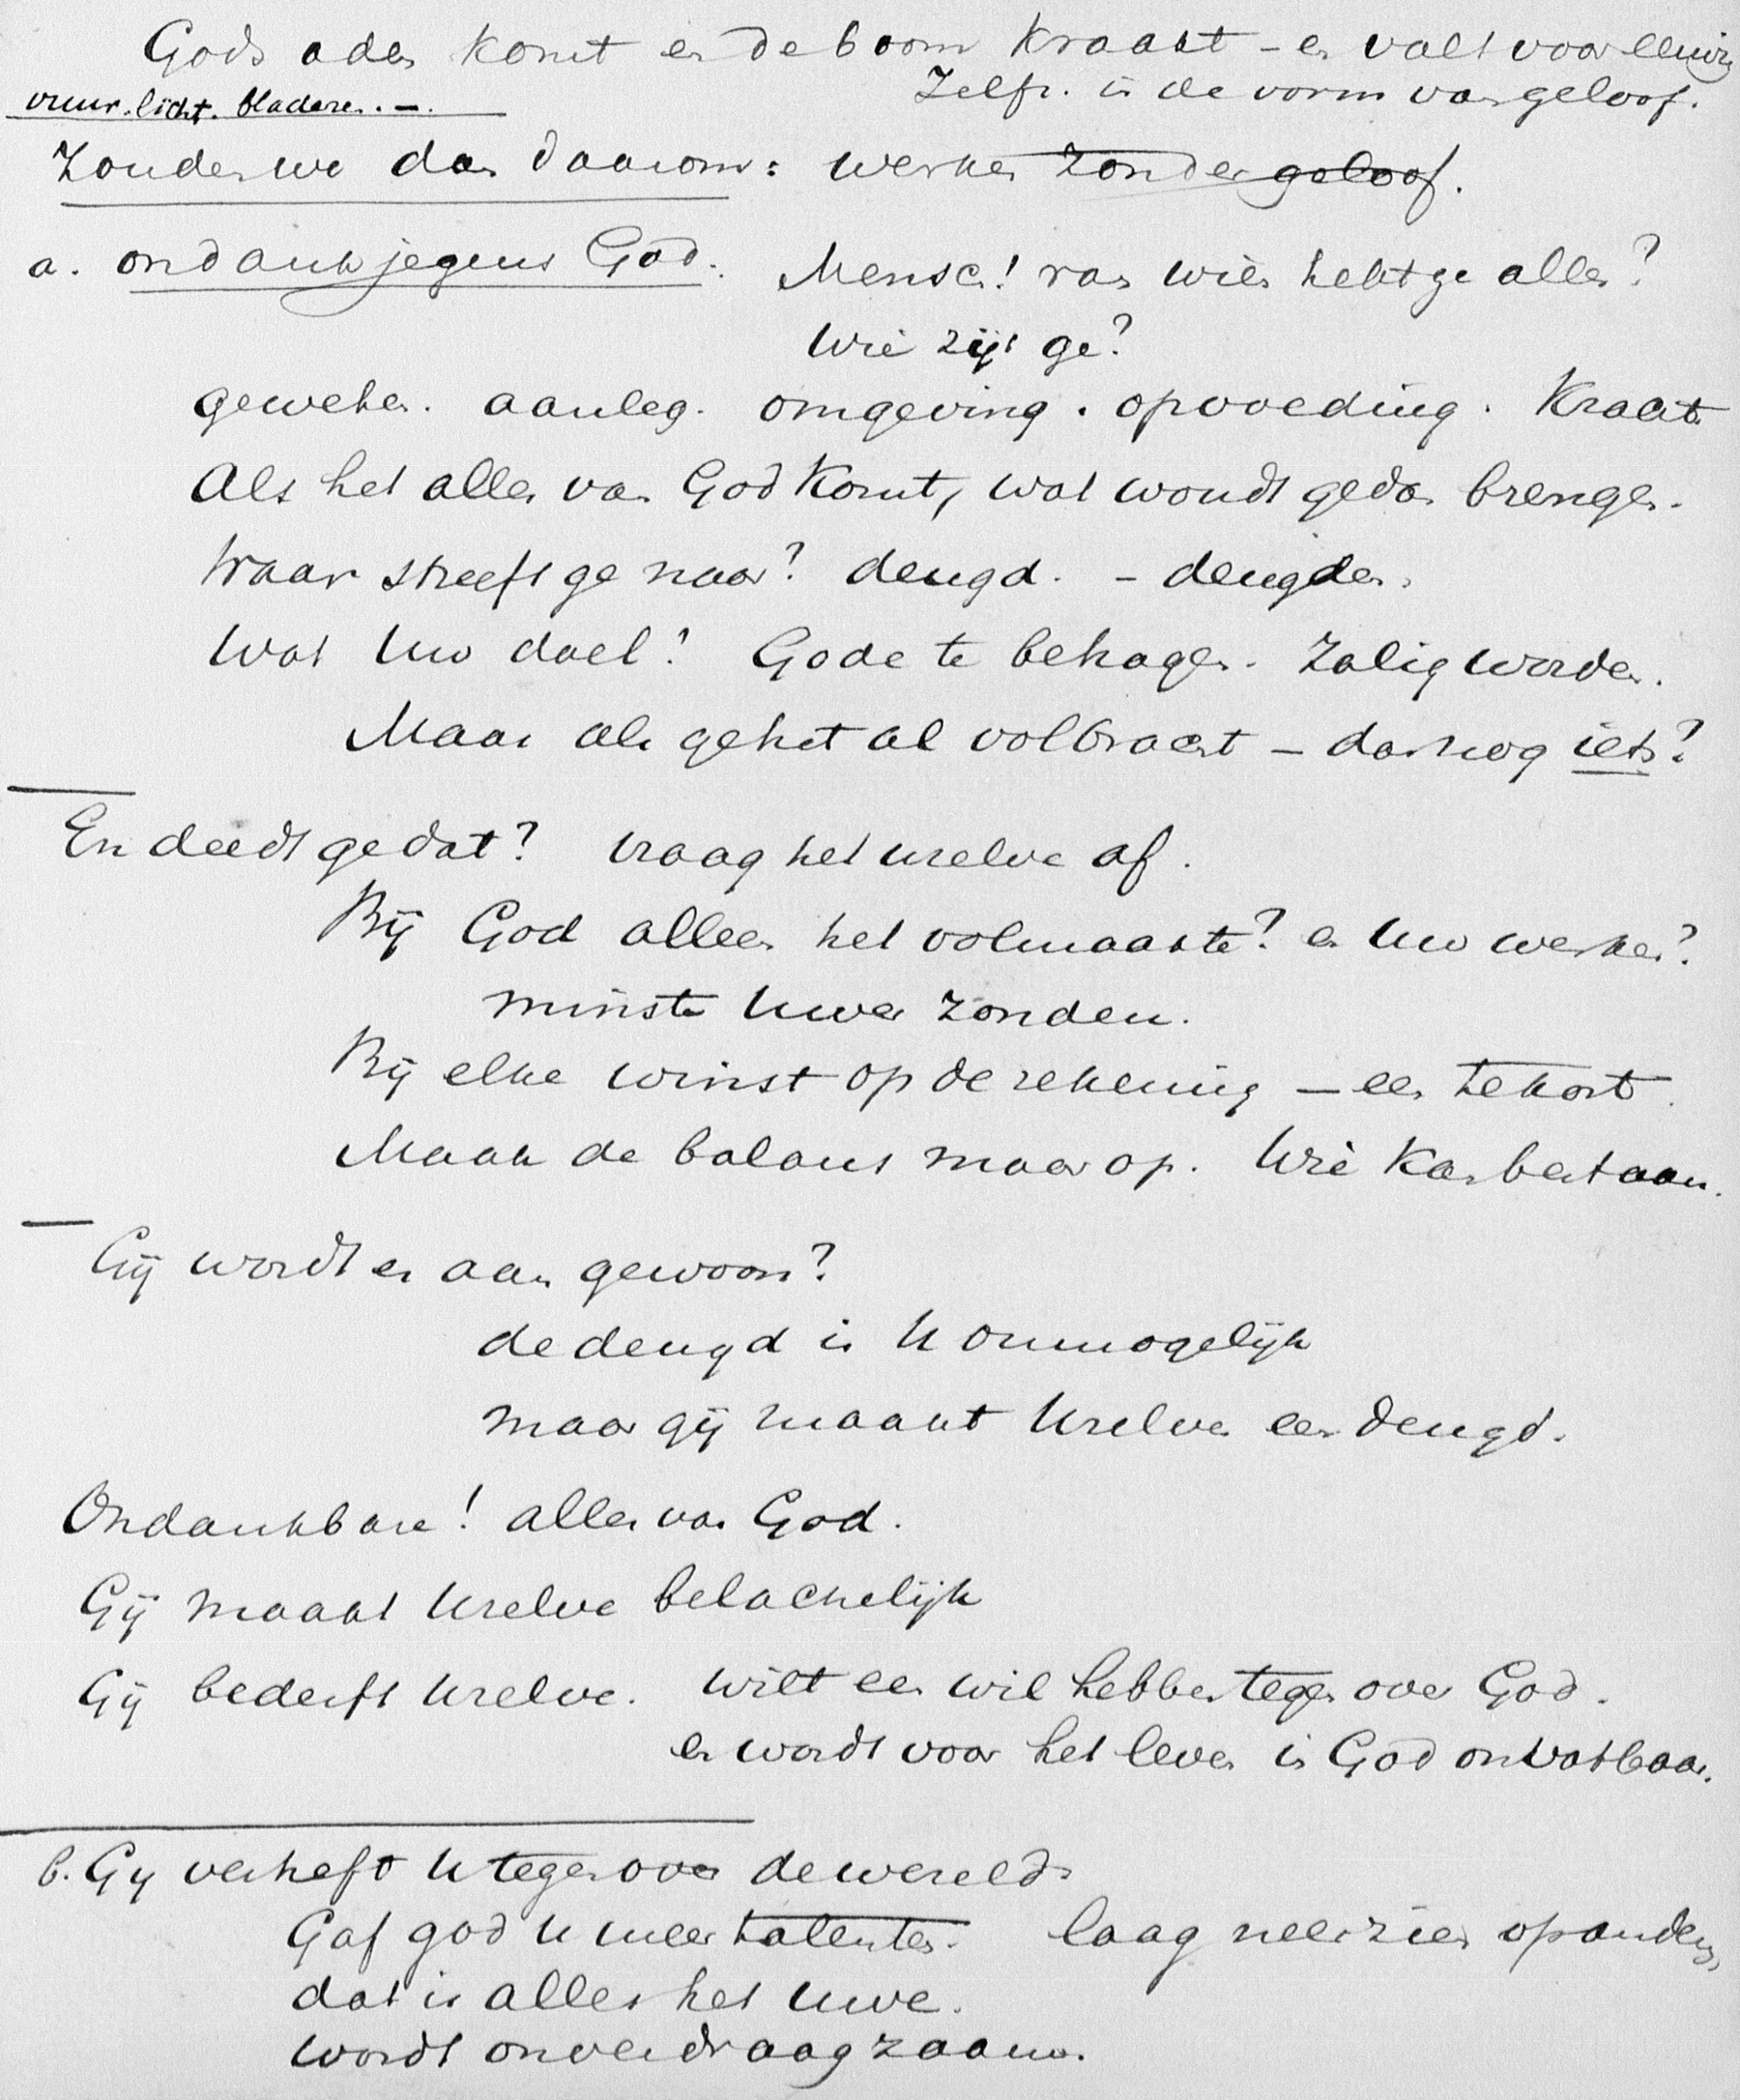 Gods adem komt en de boom kraakt – en valt voor eeuwig
Zelfr. is de vorm van geloof.
vruur. licht. bladeren. –.
Zonden we dan daarom: werken zonder geloof.
a. ondank jegens God. Mensch! van wien hebt ge alles?
Wie zijt ge?
geweten. aanleg. omgeving. opvoeding. Kracht.
Als het alles van God komt, wat woudt ge dan brengen.
Waar streeft ge naar? deugd. – deugden.
Wat Uw doel? Gode te behagen. Zalig worden.
Maar als ge het al volbracht – dan nog iets?
En deedt ge dat? Vraag het Uzelve af.
Bij God alleen het volmaakte? en Uw werken?
minste Uwer zonden.
Bij elke winst op de rekening – een tekort.
Maak de balans maar op. Wie kan bestaan.
Gij wordt er aan gewoon?
de deugd is U onmogelijk
maar gij maakt Uzelven een deugd.
Ondankbare! alles van God.
Gij maakt Uzelve belachelijk
Gij bederft Uzelve. wilt een wil hebben tegenover God.
en wordt voor het leven in God onvatbaar.
b. Gij verheft U tegenover de wereld.
Gaf god U meer talenten. laag neerzien op anderen,
dat is alles het Uwe.
wordt onverdraagzaam.